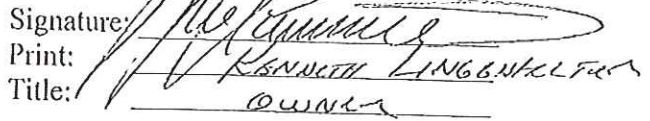 Signature:
Print: KENNETH LINGENFELTER
Title: OWNER